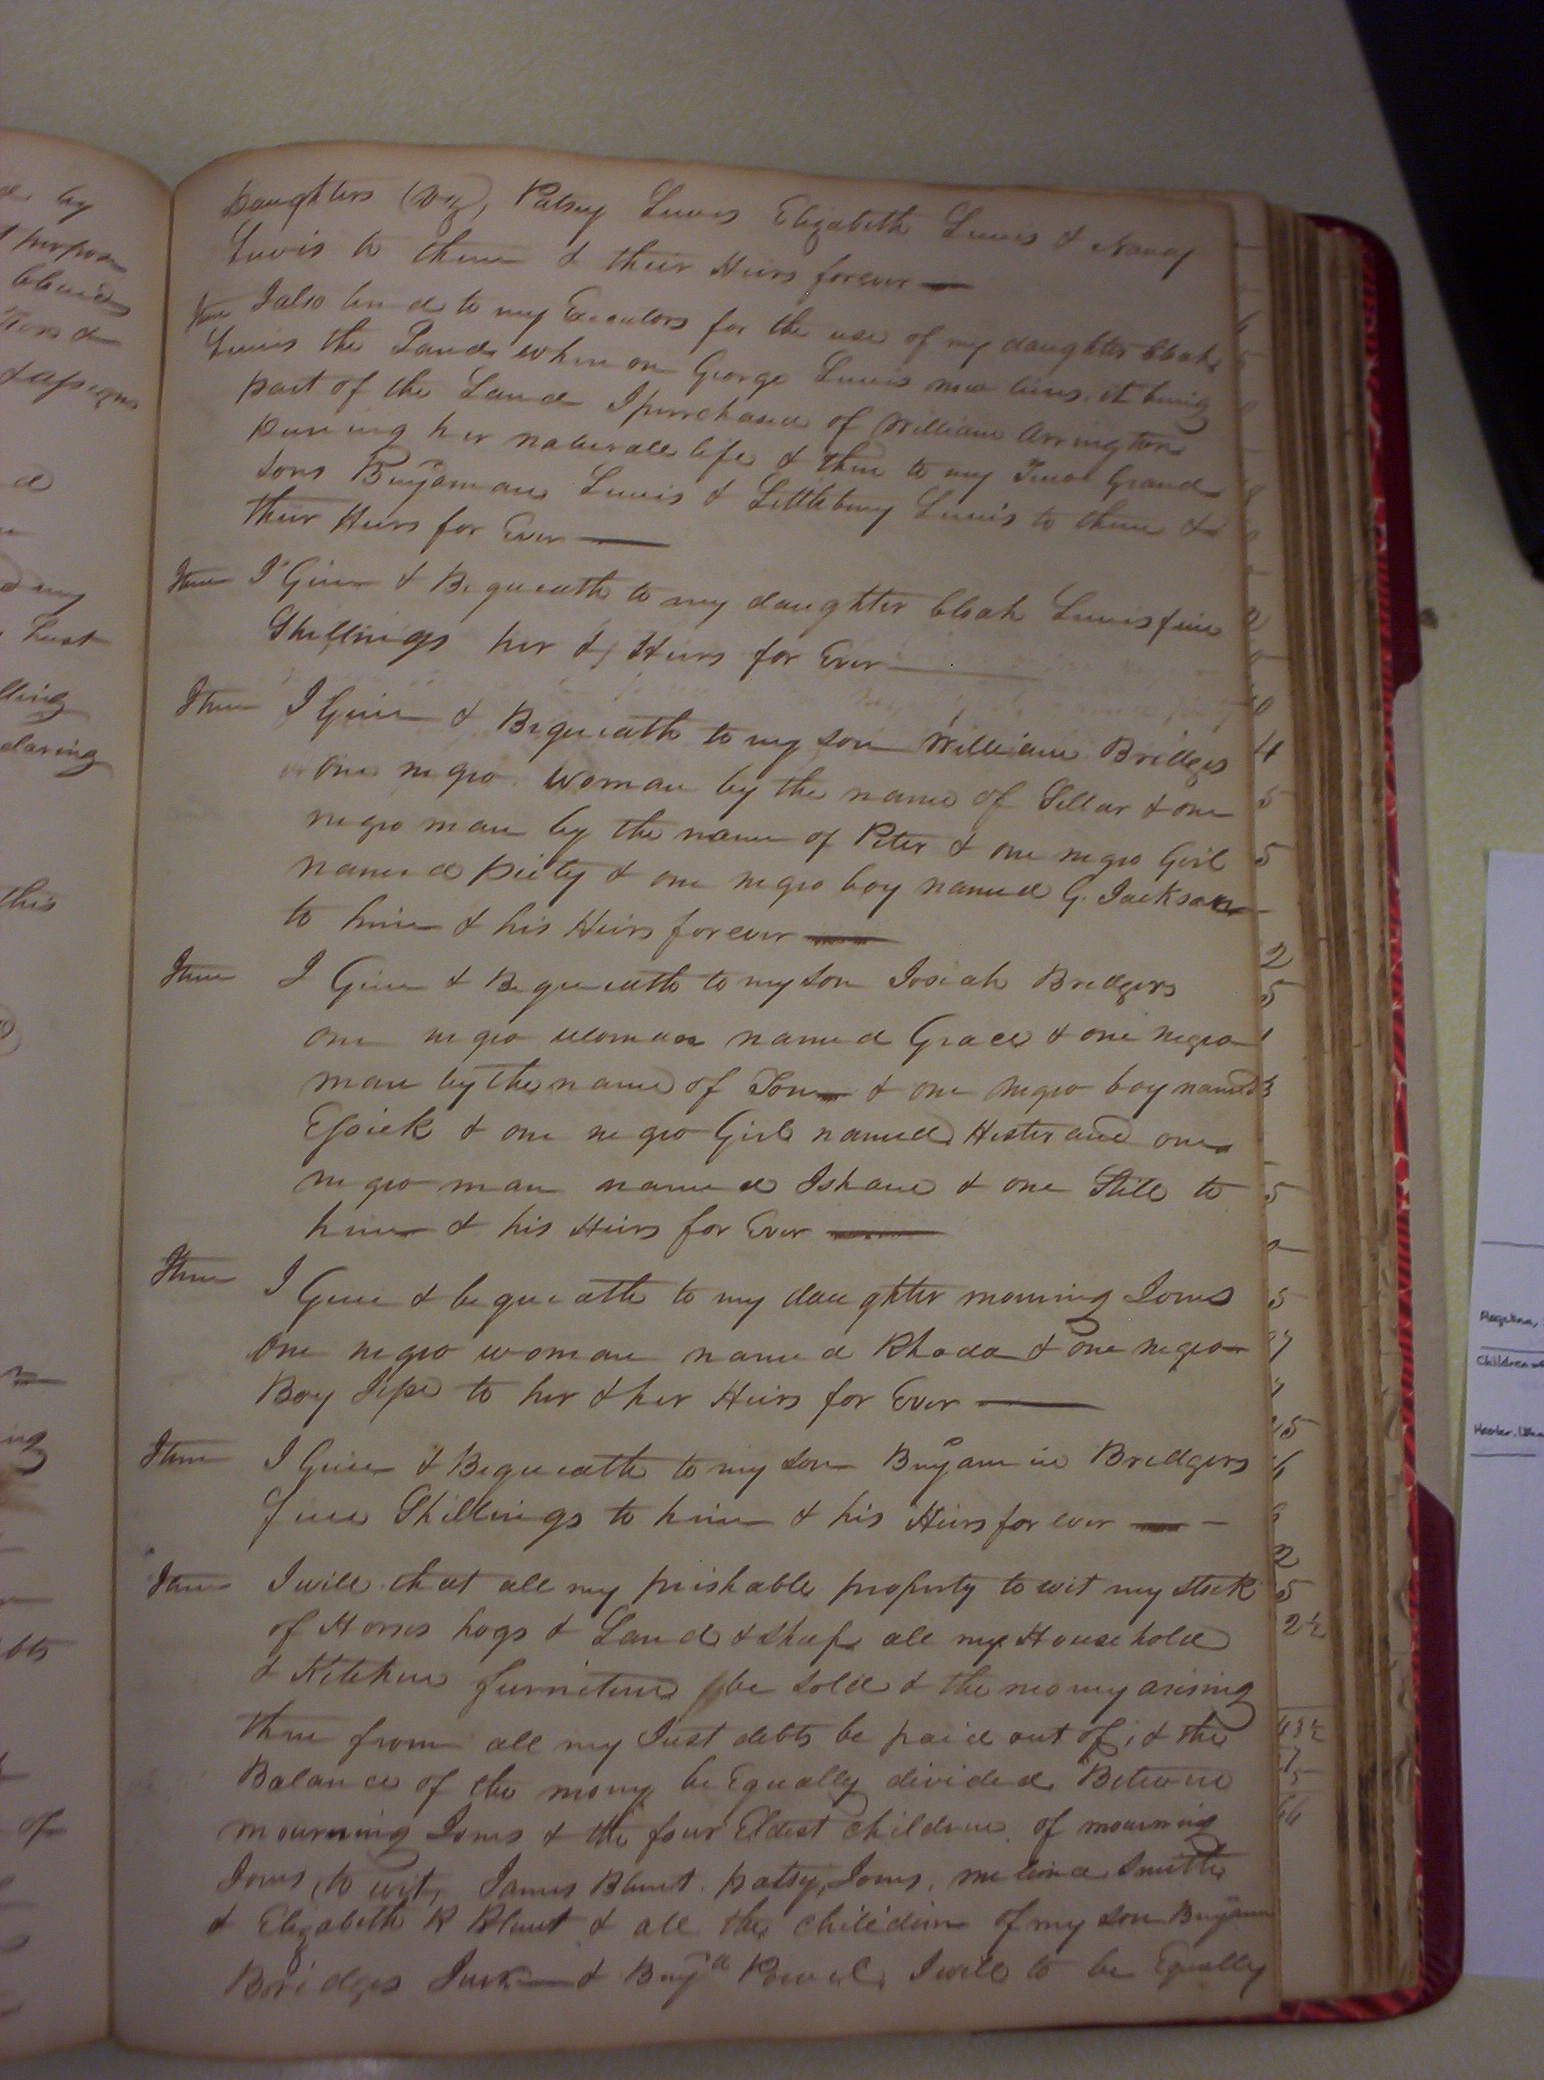 Daughters (Viz), Patsey Lewis Elizabeth Lewis & Nancy
Lewis to them & their Heirs forever
Item I also lend to my Executors for the use of my daughter
Lewis the Land whereon George Lewis now lives, it being
part of the Land I purchased of William Arrington
During her naturall life & then to my Two Grand
sons Benjaman Lewis & Littlebury Lewis to them &
their Heirs for Ever
Item I Give & Bequeath to my daughter Lewis five
Shillings her & Heirs for Ever
Item I Give & Bequeath to my son William Bridges
one negro woman by the name of Sillar & one
negro man by the name of Peter & one negro Girl
named Piety & one negro boy named G. Jackson
to him & his Heirs forever
Item I Give & Bequeath to my son Josiah Bredgers
one negro woman named Grace & one negro
man by the name of Tom & one negro boy named
& one negro Girl named Hester and one
negro man named Isham & one Still to
him & his Heirs for Ever
Item I Give & bequeath to my daughter mourning Jones
One negro woman named Rhoda & one negro
Boy to her & her Heirs for Ever
Item I Give & Bequeath to my son Benjamin Bredgers
five Shillings to him & his Heirs forever
Item I will that all my prishable property to wit my stock
of Horses hogs & Land & sheep all my Household
& Kitchen furniture be sold & the money arising
there from all my Just debts be paid out of, & the
Balance of the mony be Equally divided Between
mourning Jones & the four Eldest children of mourning
Jones, to wit, James Blunt, patsy Jones, Smith
& Elizabeth R Blunt & all the children of my son Benjamin
Bridges & Benja Powel, I will to be Equally